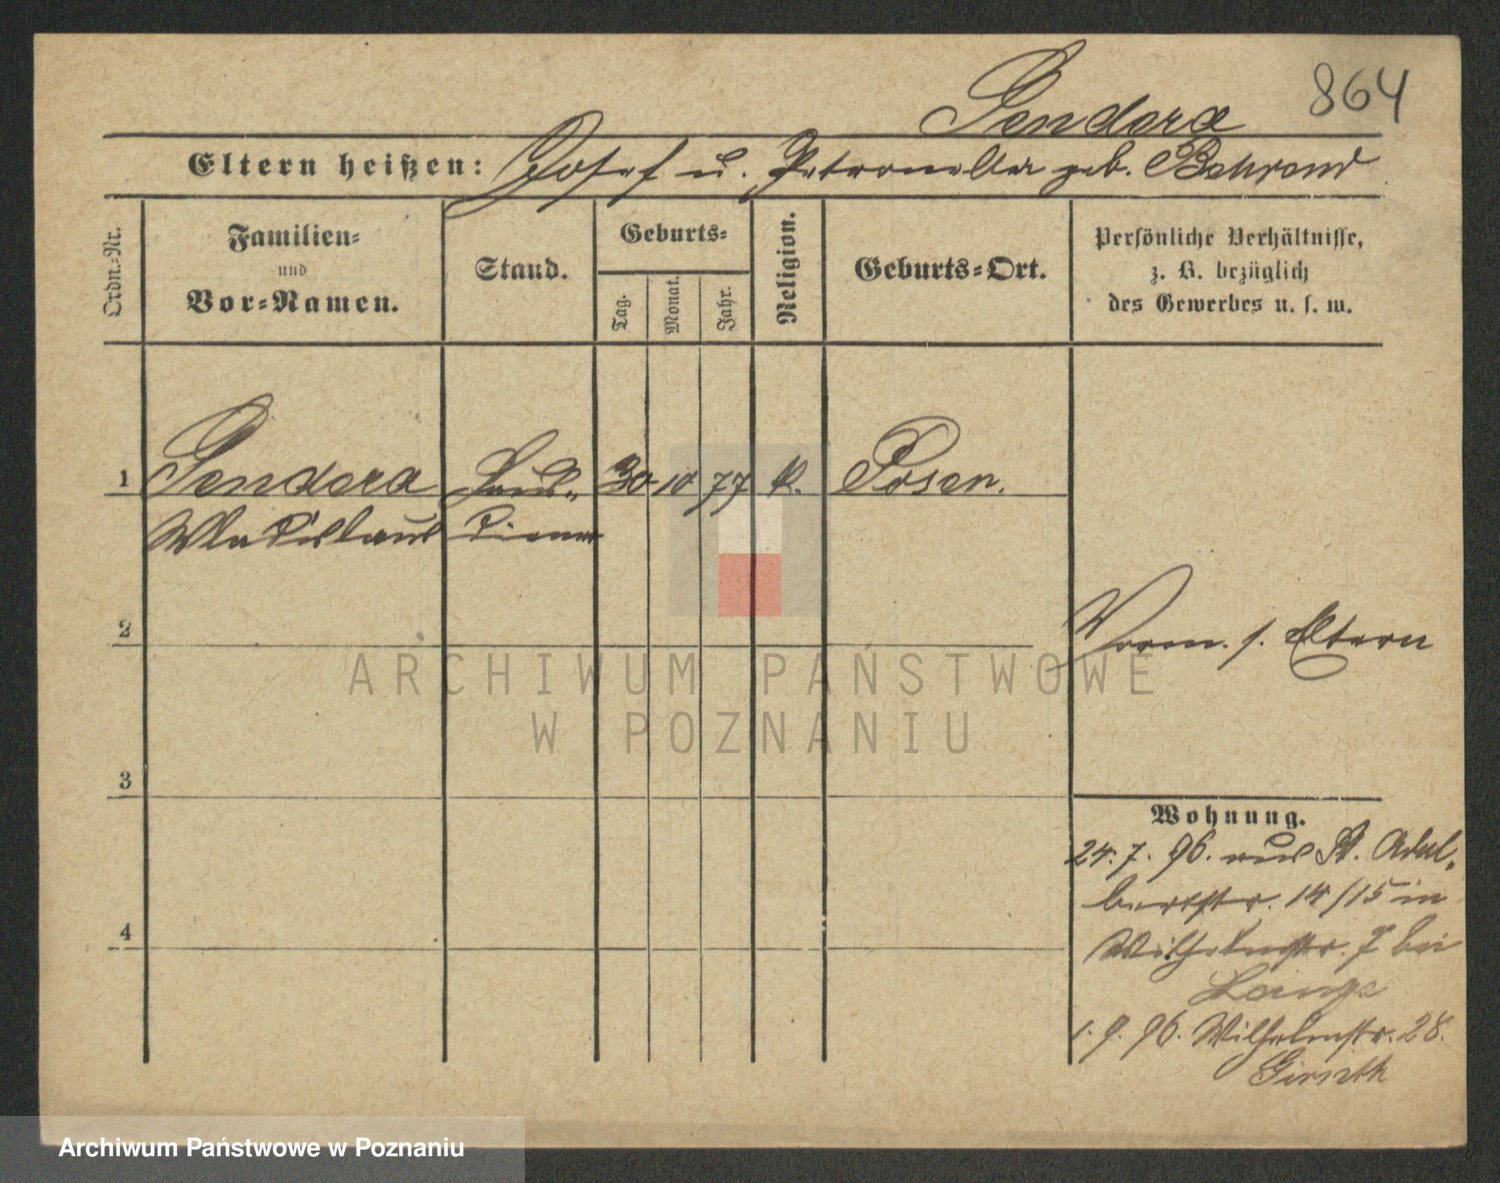 864
Gendera
Eltern heißen: Josef u. Petronella geb. Behrend
Ordn.=Nr.
Familien=
und
Vor=Namen.
Stand.
Geburts=
Tag.
Monat.
Jahr.
Religion.
Geburts=Ort.
Persönliche Verhältnisse,
z. B. bezüglich
des Gewerbes u. s. w.
1 Gendera Haus= 30 10 77 k. Posen.
Wladislaus diener
2
Verm. s. Eltern
3
4
Wohnung.
24.7.96. aus St. Adal=
bertstr. 14/15 in
Wilhelmstr. 7 bei
Lange
1.9.96. Wilhelmstr. 28.
ARCHIWUM PAŃSTWOWE
W POZNANIU
Archiwum Państwowe w Poznaniu